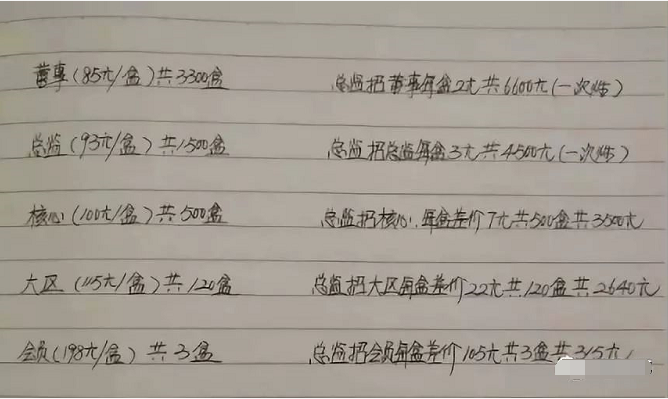 董事(85元/盒)共3300盒 总监招董事每盒2元共6600元(一次性)
总监(93元/盒)共1500盒 总监招总监每盒3元共4500元(一次性)
核心(100元/盒)共500盒 总监招核心,每盒差价7元共500盒共3500元
大区(115元/盒)共120盒 总监招大区每盒差价22元共120盒共2640元
会员(198元/盒)共3盒 总监招会员每盒差价105元共3盒共315元